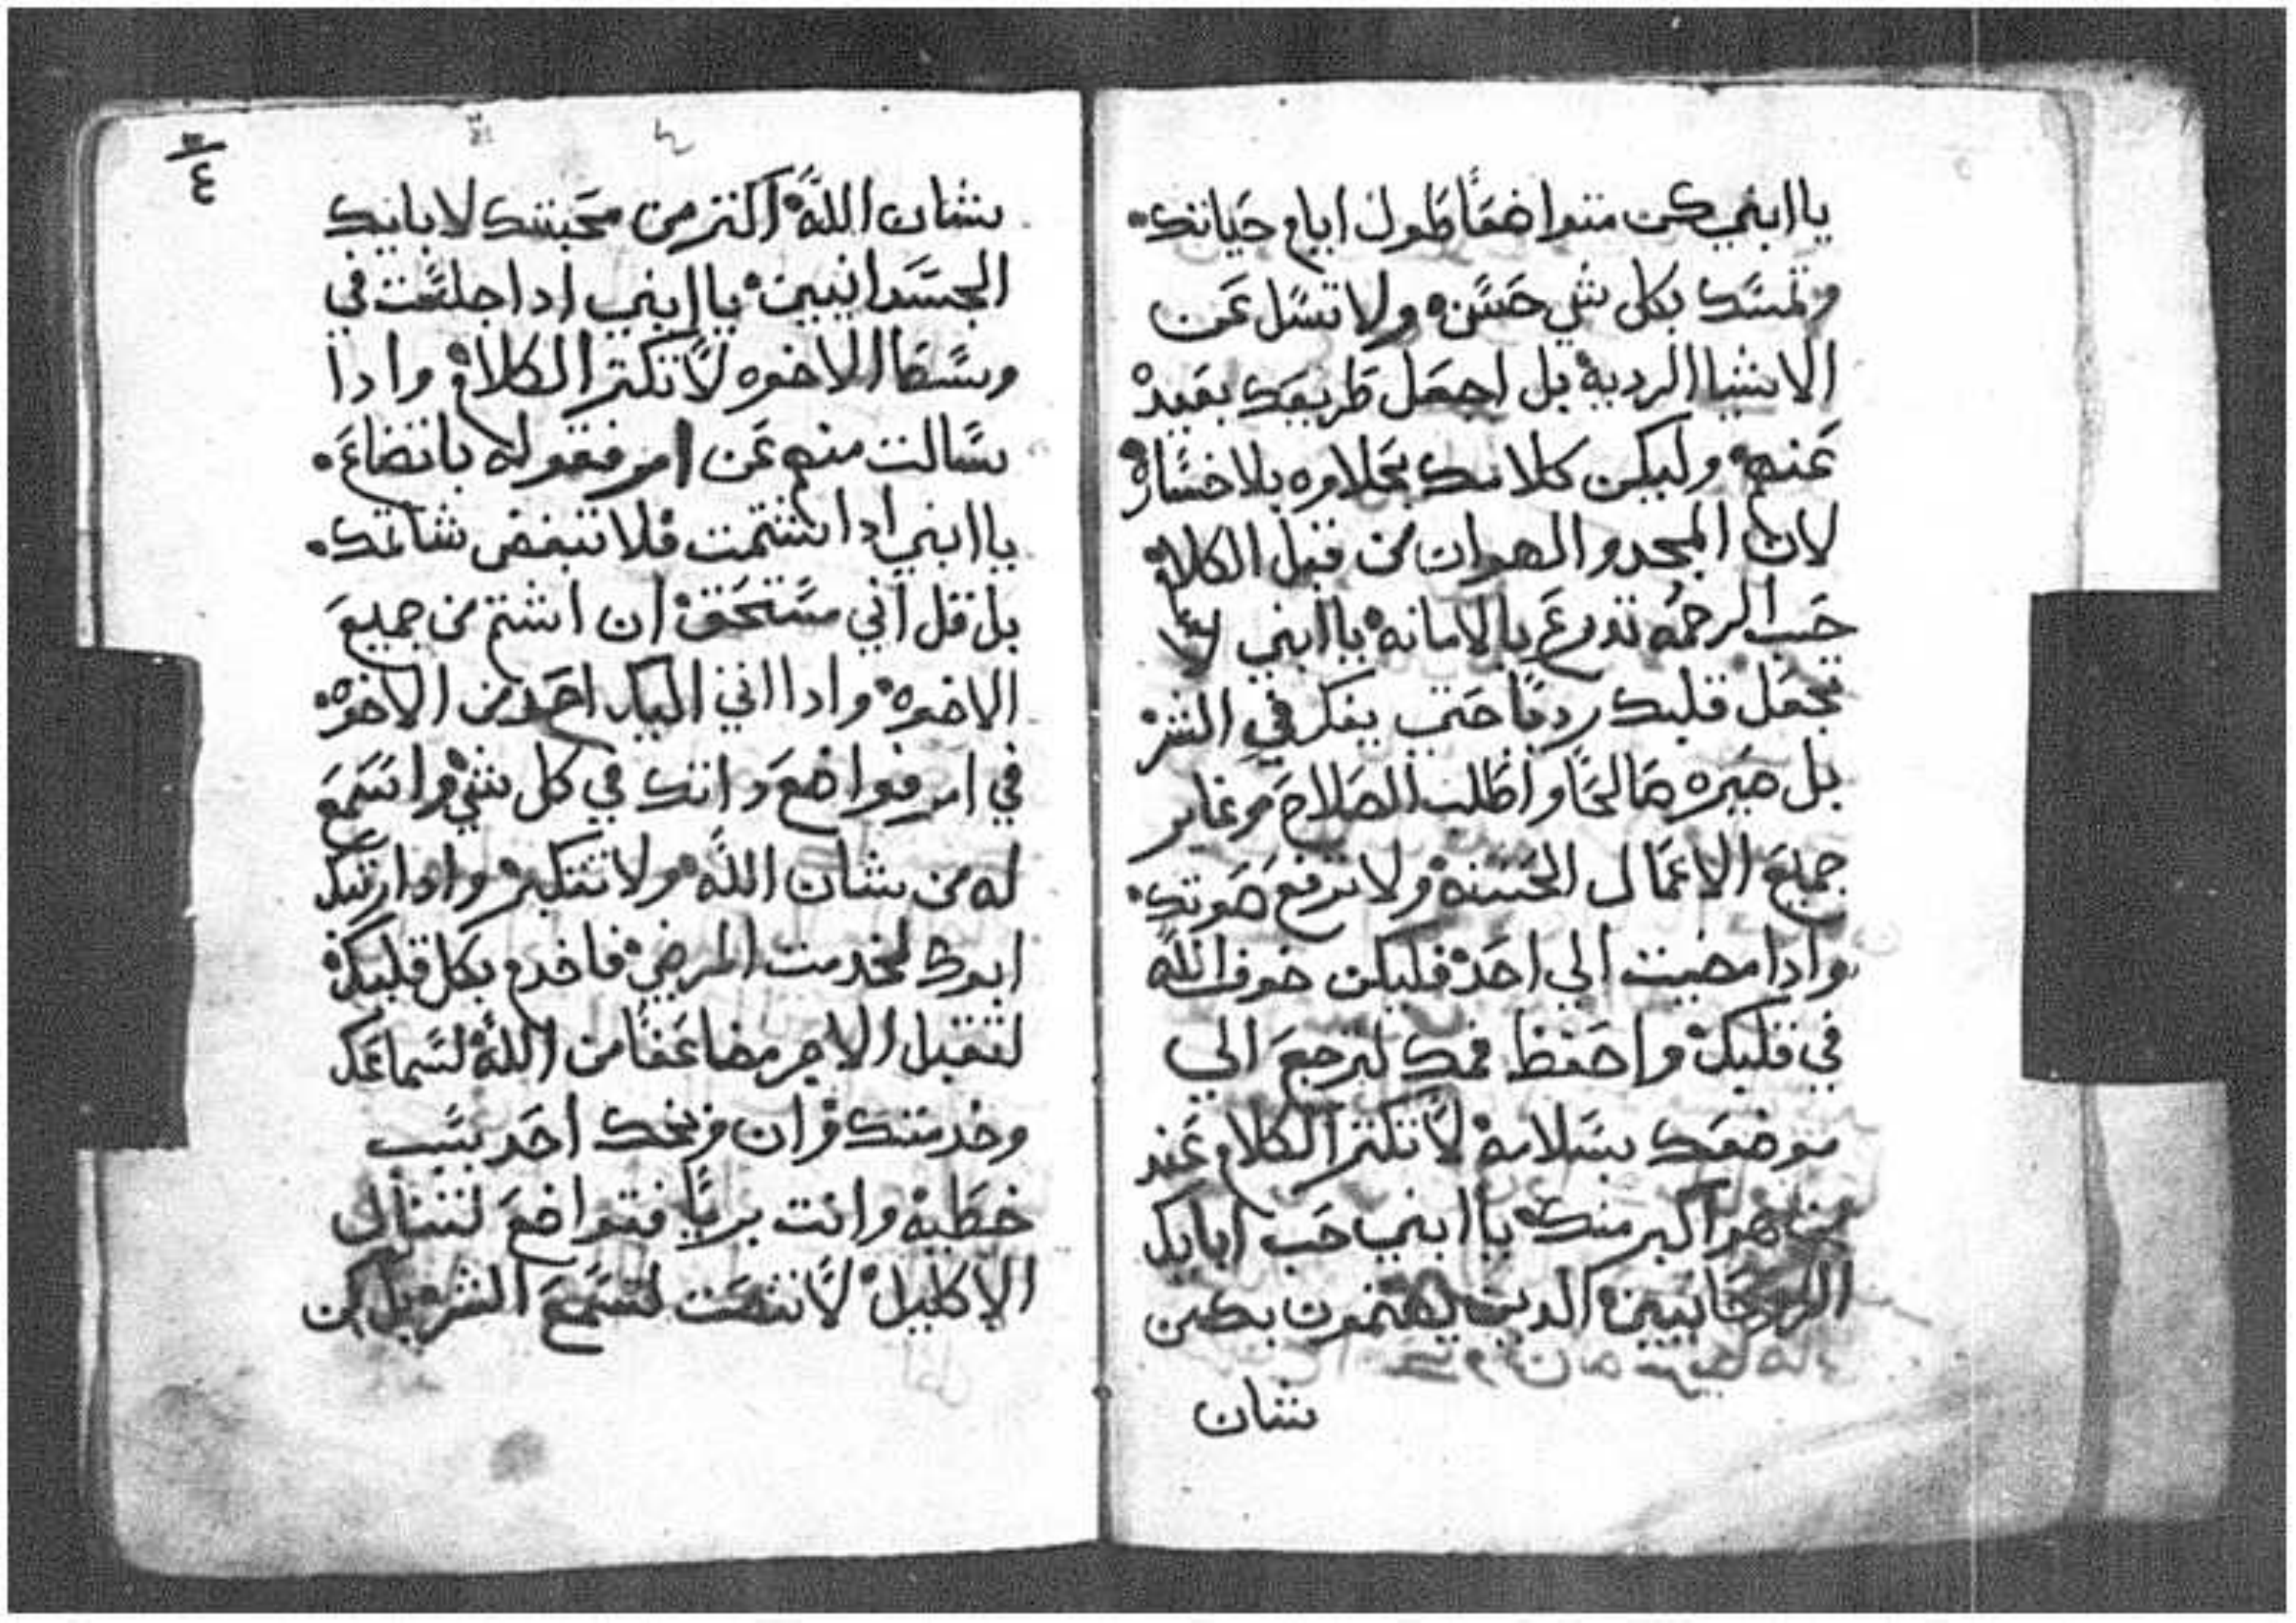 يا ابني كن متواضعًا طول ايام حياتك.
وتمسك بكل شي حسن. ولا تسل عن
الاشيا الرديه بل اجعل طريقك بعيد
عنهم وليكن كلامك بحلاوه بلا خساره
لان المجد والهوان من قبل الكلام
حب الرحمه تدرع بالامانه يا ابني لا
تجعل قلبك رديًا حتي يفكر في الشر
بل صيره صالحًا واطلب الصلاح وغاير
جميع الاعمال الحسنه ولا ترفع صوتك.
واذا مضيت الي احد فليكن خوف الله
في قلبك واحفظ فمك لترجع الي
موضعك بسلامه لا تكتر الكلام عند
من هو اكبر منك يا ابني حب اباك
الروحانيين الدين يهتمون بك من
شان
٤
بشان الله اكتر من محبتك لابايك
الجسدانيين يا ابني ادا جلست في
وسط الاخوه لا تكتر الكلام وادا
سالت منهم عن امر فقوله باتضاع.
يا ابني ادا شتمت فلا تبغض شاتمك.
بل قل اني مستحق ان اشتم من جميع
الاخوه وادا اتي اليك احد من الاخوه
في امر فتواضع داتك في كل شي واستمع
له من شان الله ولا تتكبر وادا رتبك
ابوك لخدمت المرضي فاخدم بكل قلبك
لتقبل الاجر مضاعفًا من الله لسماعك
وخدمتك وان وبخك احد بسبب
خطيه وانت بريًا فتواضع لتنال
الاكليل لا تنصت لتسمع الشر بل كن